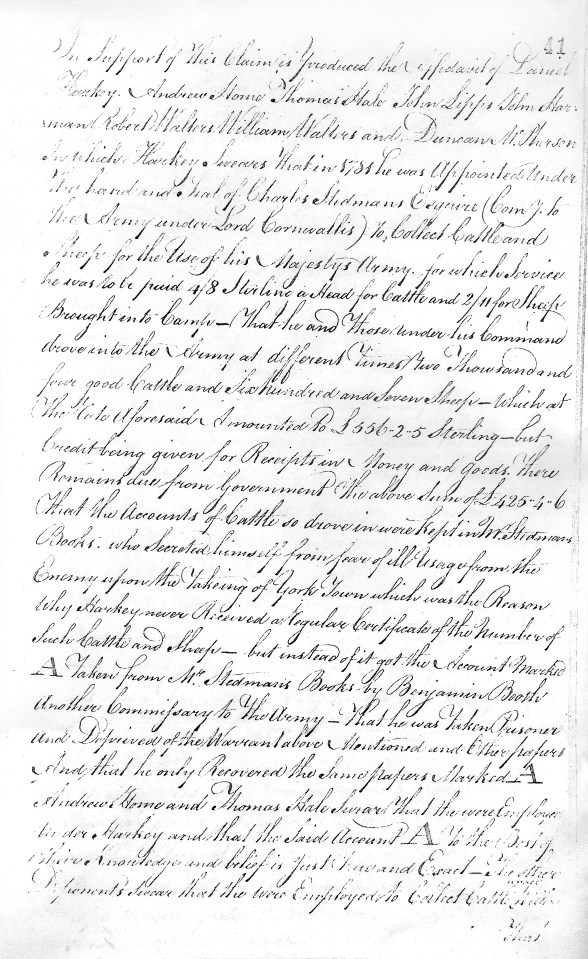 41
In Support of this Claim is produced the Affidavit of Daniel
Harkey. Andrew Home Thomas Hale John Lipps John Har=
man Robert Walters William Walters and Duncan McPherson
In which Harkey Swears that in 1781 he was Appointed Under
the hand and Seal of Charles Stedmans Esquire (Comy. to
the Army under Lord Cornwallis) to Collect Cattle and
Sheep for the Use of his Majestys Army. for which Service
he was to be paid 4/8 Sterling a Head for Cattle and 2/11 for Sheep
Brought into Camp — That he and Those under his Command
drove into the Army at different Times Two Thousand and
four good Cattle and Six hundred and Seven Sheep — which at
the rate Aforesaid Amounted to £556-2-5 Sterling — but
Credit being given for Receipts in Money and goods. There
Remains due from Government the above Sum of £425-4-6
That the Accounts of Cattle so drove in were kept in Mr. Stedmans
Books. who Secreted himself from fear of ill Usage from the
Enemy upon the Takeing of York Town which was the Reason
Why Harkey never Received a regular Certificate of the Number of
Such Cattle and Sheep — but instead of it got the Account Marked
A Taken from Mr. Stedmans Books by Benjamin Booth
Another Commissary to the Army — That he was Taken Prisoner
and Deprived of the Warrant above Mentioned and Other papers
And that he only Recovered the Same papers Marked A
Andrew Home and Thomas Hale Swear that the were Employed
Under Harkey and that the Said Account A to the Best of
their Knowledge and belief is Just true and Exact — The other
Deponents Swear that the were Employed to Collect Cattle
That